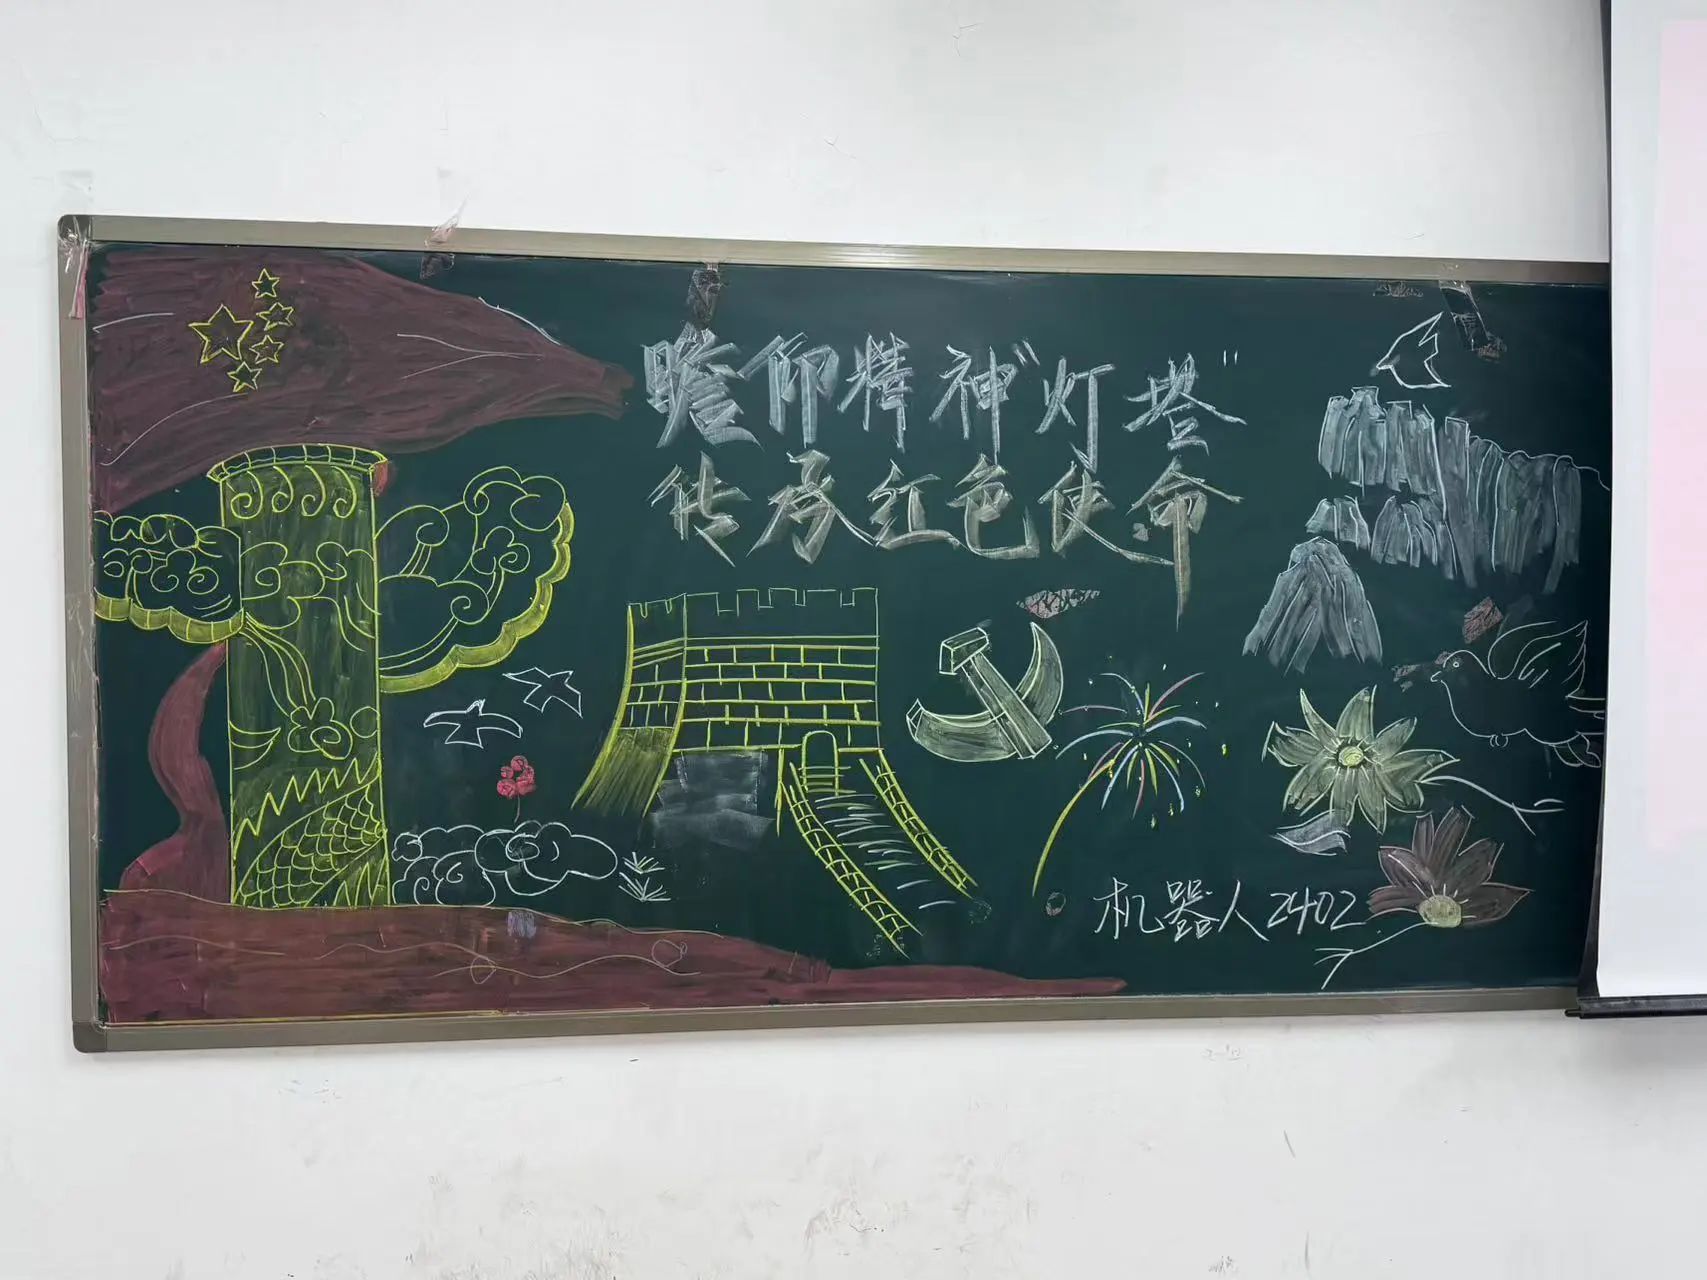 瞻仰精神"灯塔"
传承红色使命
机器人2402